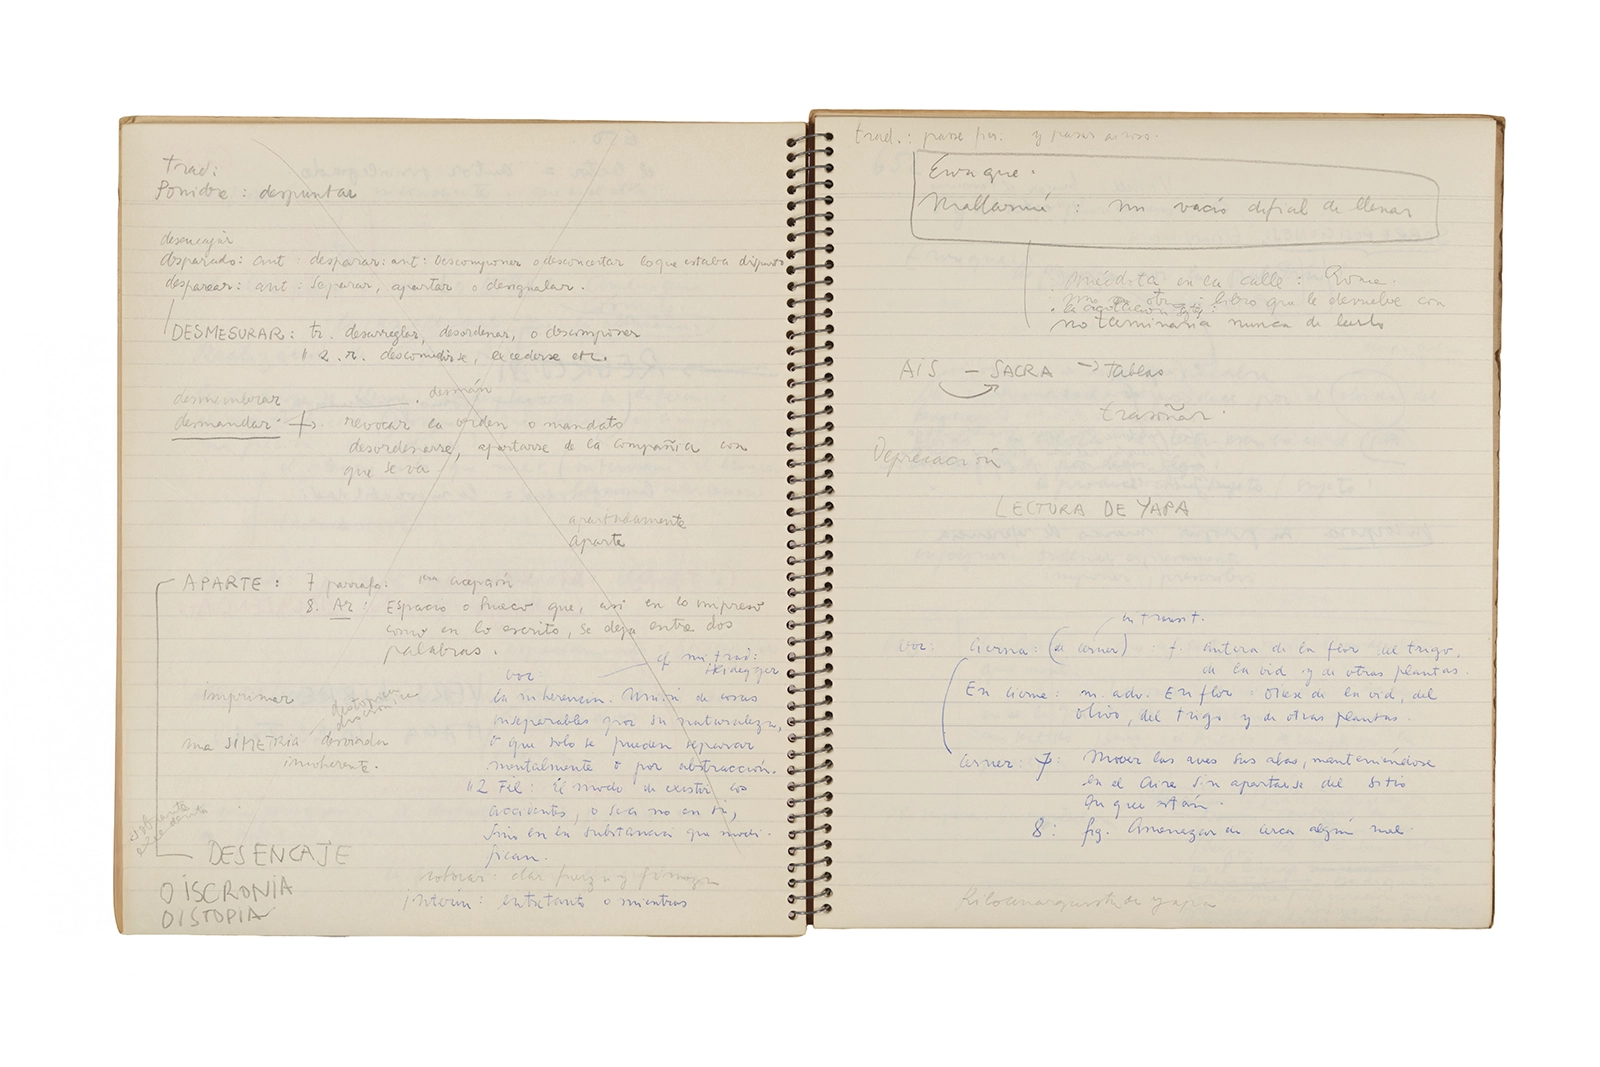 trad:
despuntar
desencajar
disparado: ant: desparar: ant: Descomponer o desconcertar lo que estaba dispuesto
desparear: ant: Separar, apartar o desigualar.
DESMESURAR: tr. desarreglar, desordenar, o descomponer
" 2. r. descomedirse, excederse etc.
desmembrar . desmán
desmandar revocar la orden o mandato
desordenarse, apartarse de la compañía con
que se va
apartadamente
aparte
APARTE: 7 párrafo: acepción
8. Ar: Espacio o hueco que, así en lo impreso
como en lo escrito, se deja entre dos
palabras.
cf mi trad:
Heidegger
voc:
imprimar la inherencia. Unión de cosas
inseparables por su naturaleza,
SIMETRIA desviada o que solo se pueden separar
inherente. mentalmente o por abstracción.
"2 Fil: El modo de existir los
accidentes, o sea no en sí,
sino en la substancia que modi-
fican.
DESENCAJE
colocar: dar
DISCRONIA
interin: entretanto o mientras
DISTOPIA
trad.: y pasar
Enroque.
Mallarmé: un vacío difícil de llenar
anécdota en la calle: Roma.
libro que le devuelve con
no terminaría nunca de leerlo
AIS — SACRA → Tablas
trasoñar.
Deprecación
LECTURA DE YAPA
intransit.
voc: cierna: (de cerner) : f. antera de la flor del trigo,
de la vid y de otras plantas.
En cierne: m. adv. En flor: dícese de la vid, del
olivo, del trigo y de otras plantas.
cerner: 7: Mover las aves sus alas, manteniéndose
en el aire sin apartarse del sitio
en que están.
8: fig. Amenazar de cerca algún mal.
de yapa